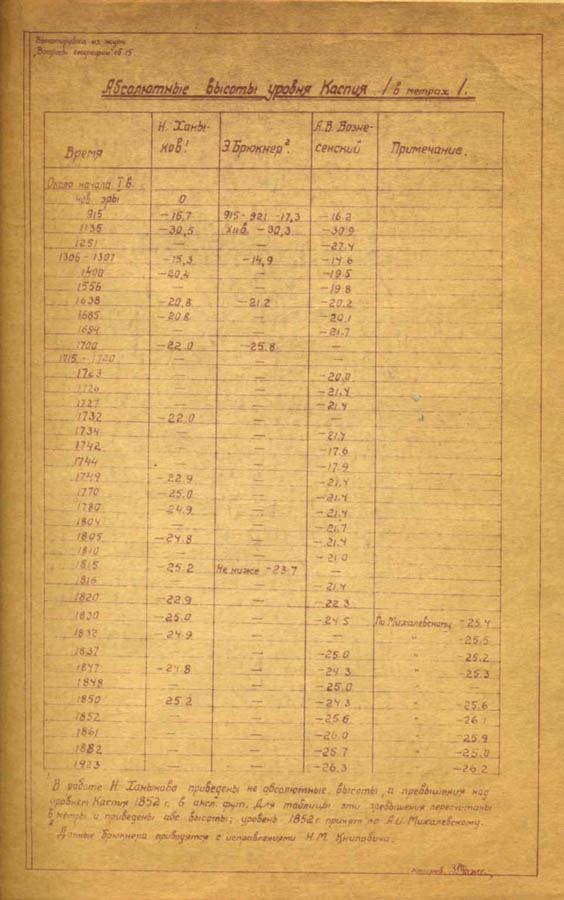 "Вопросы географии" 15
Абсолютные высоты уровня Каспия /в метрах/.
Время | Н. Ханыков¹ | Э. Брюкнер² | А.В. Вознесенский | Примечание.
Около начала I в.
нов. эры | 0
915 | -16,7 | 915-921 -17,3 | -16.2
1135 | -30,5 | XII в. -30,3 | -30.9
1251 | — | — | -27.4
1306-1307 | -15,3 | -14,9 | -14.6
1400 | -20,4 | — | -19.5
1556 | — | — | -19.8
1638 | -20,8 | -21.2 | -20.2
1685 | -20.8 | — | -20.1
1694 | — | — | -21.7
1700 | -22.0 | -25.8 | —
1715-1720 | — | — | —
1763 | — | — | -20.0
1726 | — | — | -21.4
1727 | — | — | -21.4
1732 | -22.0 | — | —
1734 | — | — | -21.4
1742 | — | — | -17.6
1744 | — | — | -17.9
1749 | -22.9 | — | -21.4
1770 | -25.0 | — | -21.4
1780 | 24.9 | — | -21.4
1804 | — | — | -21.7
1805 | -24.8 | — | -21.4
1810 | — | — | -21.0
1815 | -25.2 | Не ниже -23.7 | —
1816 | — | — | -21.4
1820 | -22.9 | — | -22.3
1830 | -25.0 | — | -24.5 | По Михалевскому -25.4
1832 | 24.9 | — | — | " -25.5
1837 | — | — | -25.0 | " -25.2
1847 | -24.8 | — | -24.3 | " -25.3
1848 | — | — | -25.0 | " —
1850 | 25.2 | — | -24.3 | " -25.6
1852 | — | — | -25.6 | " -26.1
1861 | — | — | -26.0 | " -25.9
1882 | — | — | -25.7 | " -25.0
1923 | — | — | -26.3 | -26.2
¹ В работе Н. Ханыкова приведены не абсолютные высоты, а превышения над
уровнем Каспия 1852 г. в англ. фут. Для таблицы эти превышения пересчитаны
в метры и приведены абс. высоты; уровень 1852 г. принят по А.И. Михалевскому.
² Данные Брюкнера приводятся с исправлениями Н.М. Книповича.
копиров.